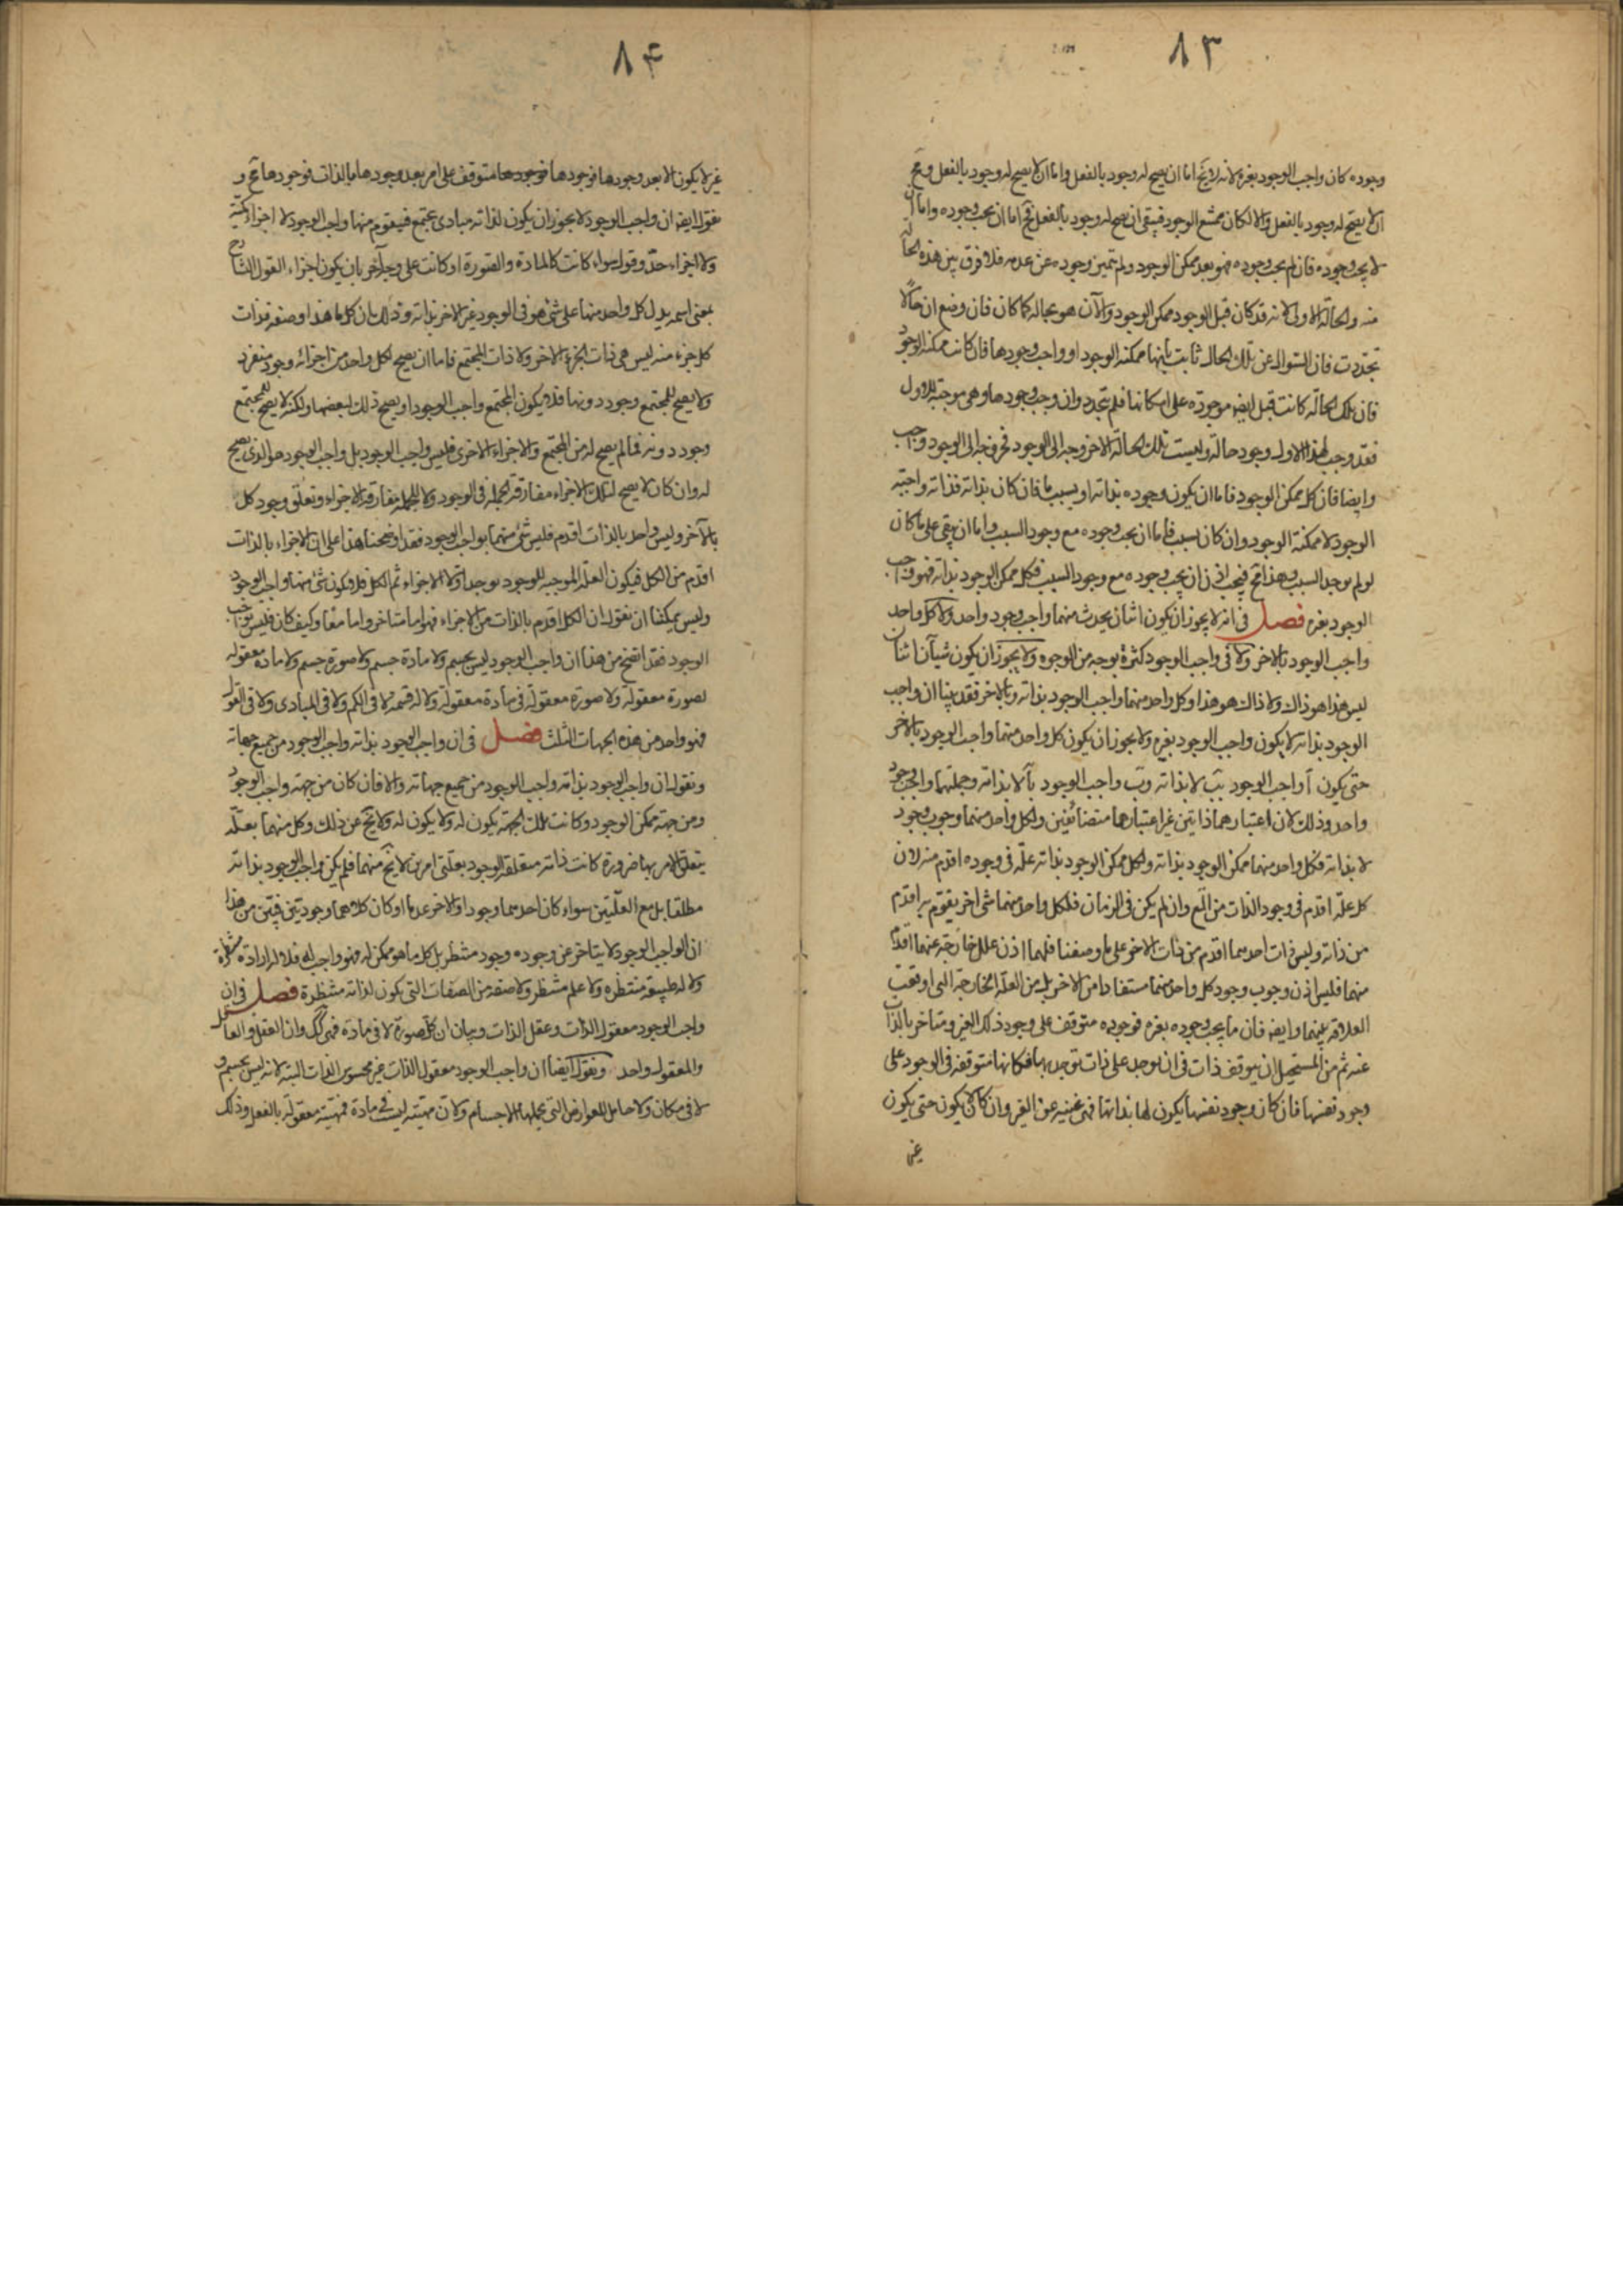 ٨٣
وجوده كان واجب الوجود بغيره لانه لا يخ اما ان يصح له وجود بالفعل واما ان لا يصح له وجود بالفعل ومح
ان لا يصح له وجود بالفعل والا لكان ممتنع الوجود فبقى ان يصح له وجود بالفعل فح اما ان يجب وجوده واما ان
لا يجب وجوده فان لم يجب وجوده فهو بعد ممكن الوجود ولم يتميز وجوده عن عدمه فلا فرق بين هذه الحالة
منه والحالة الاولى لانه قد كان قبل الوجود ممكن الوجود والآن هو بحاله كما كان فان وضع ان حالا
تجددت فان السؤال عن تلك الحال ثابت بانها ممكنة الوجود او واجب وجودها فان كانت ممكنة الوجود
فان تلك الحالة كانت قبل ايضا موجودة على امكانها فلم يتجدد وان وجب وجودها وهى موجبة للاول
فقد وجب لهذا الاول وجود حالة وليست تلك الحالة الا خروجه الى الوجود فخروجه الى الوجود واجب
وايضا فان كل ممكن الوجود فاما ان يكون وجوده بذاته او بسبب ما فان كان بذاته فذاته واجبة
الوجود لا ممكنة الوجود وان كان بسبب فاما ان يجب وجوده مع وجود السبب واما ان يبقى على ما كان
لو لم يوجد السبب وهذا مح فيجب اذن ان يجب وجوده مع وجود السبب فكل ممكن الوجود بذاته فهو واجب
الوجود بغيره فصل فى انه لا يجوز ان يكون اثنان يحدث منهما واجب وجود واحد ولا كل واحد
واجب الوجود بالاخر ولا فى واجب الوجود كثرة بوجه من الوجوه ولا يجوز ان يكون شيآن اثنان
ليس هذا هو ذاك ولا ذاك هو هذا وكل واحد منهما واجب الوجود بذاته وبالاخر فقد بينا ان واجب
الوجود بذاته لا يكون واجب الوجود بغيره ولا يجوز ان يكون كل واحد منهما واجب الوجود بالاخر
حتى يكون آ واجب الوجود ببَ لا بذاته وبَ واجب الوجود بآ لا بذاته وجملتهما واجب وجود
واحد وذلك لان اعتبارهما ذاتين غير اعتبارهما متضائفين ولكل واحد منهما وجوب وجود
لا بذاته فكل واحد منهما ممكن الوجود بذاته ولكل ممكن الوجود بذاته علة فى وجوده اقدم منه لان
كل علة اقدم فى وجود الذات من المع وان لم يكن فى الزمان فلكل واحد منهما شى اخر يقوم به اقدم
من ذاته وليس ذات احدهما اقدم من ذات الاخر على ما وصفنا فلهما اذن علل خارجة عنهما اقدم
منهما فليس اذن وجوب وجود كل واحد منهما مستفادا من الاخر بل من العلة الخارجة التى اوقعت
العلاقة بينهما وايضا فان ما يجب وجوده بغيره فوجوده متوقف على وجود ذلك الغير ومتاخر بالذات
عنه ثم من المستحيل ان يتوقف ذات فى ان يوجد على ذات توجد بها فكانها متوقفة فى الوجود على
وجود نفسها فان كان وجود نفسها يكون لها بذاتها فهى غنية عن الغير وان كان يكون حتى يكون
غير
٨۴
غير لا يكون الا بعد وجودها فوجودها متوقف على امر بعد وجودها بالذات فوجودها مح و
نقول ايضا ان واجب الوجود لا يجوز ان يكون لذاته مبادى تجتمع فيتقوم منها واجب الوجود لا اجزاء كمية
ولا اجزاء حد وقول سواء كانت كالمادة والصورة او كانت على وجه آخر بان يكون اجزاء القول الشارح
بمعنى اسمه يدل كل واحد منها على شئ هو فى الوجود غير الاخر بذاته وذلك بان كل ما هذا وصفه فذات
كل جزء منه ليس هى ذات الجزء الاخر ولا ذات المجتمع فاما ان يصح لكل واحد من اجزائه وجود منفرد
ولا يصح للمجتمع وجود دونها فلا يكون المجتمع واجب الوجود او يصح ذلك لبعضها ولكنه لا يصح للمجتمع
وجود دونه فما لم يصح له من المجتمع والاجزاء الاخرى فليس واجب الوجود بل واجب الوجود هو الذى يصح
له وان كان لا يصح لتلك الاجزاء مفارقة الجملة فى الوجود ولا للجملة مفارقة الاجزاء وتعلق وجود كل
بالآخر وليس واحد بالذات اقدم فليس شئ منهما بواجب الوجود فقد اوضحنا هذا على ان الاجزاء بالذات
اقدم من الكل فيكون العلة الموجبة للوجود يوجد اولا الاجزاء ثم الكل فلا يكون شئ منها واجب الوجود
وليس يمكننا ان نقول ان الكل اقدم بالذات من الاجزاء فهو اما متاخر واما معا وكيف كان فليس بواجب
الوجود فقد اتضح من هذا ان واجب الوجود ليس بجسم ولا مادة جسم ولا صورة جسم ولا مادة معقولة
لصورة معقولة ولا صورة معقولة فى مادة معقولة ولا له قسمة لا فى الكم ولا فى المبادى ولا فى القول
فهو واحد من هذه الجهات الثلث فصل فى ان واجب الوجود بذاته واجب الوجود من جميع جهاته
ونقول ان واجب الوجود بذاته واجب الوجود من جميع جهاته والا فان كان من جهة واجب الوجود
ومن جهة ممكن الوجود وكانت تلك الجهة يكون له ولا يكون له ولا يخ عن ذلك وكل منهما بعلة
يتعلق الامر بها ضرورة كانت ذاته متعلقة الوجود بعلتى امرين لا يخ منهما فلم يكن واجب الوجود بذاته
مطلقا بل مع العلتين سواء كان احدهما وجودا والاخر عدما او كان كلاهما وجوديين فبيّن من هذا
ان الواجب الوجود لا يتاخر عن وجوده وجود منتظر بل كل ما هو ممكن له فهو واجب له فلا له ارادة منتظرة
ولا له طبيعة منتظرة ولا علم منتظر ولا صفة من الصفات التى يكون لذاته منتظرة فصل فى ان
واجب الوجود معقول الذات وعقل الذات وبيان ان كل صورة لا فى مادة فهى كك وان العقل والعاقل
والمعقول واحد ونقول ايضا ان واجب الوجود معقول الذات غير محسوس الذات البتة لانه ليس بجسم و
لا فى مكان ولا حامل للعوارض التى تحملها الاجسام ولان مهيته ليست فى مادة فمهيته معقولة بالفعل وذلك